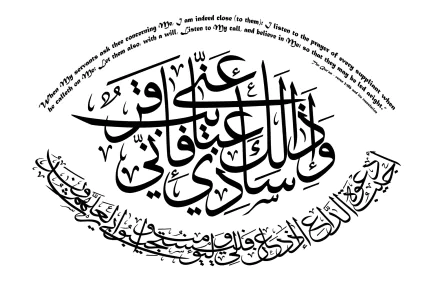 "When My servants ask thee concerning Me, I am indeed close (to them); I listen to the prayer of every suppliant when
he calleth on Me; Let them also, with a will, Listen to My call, and believe in Me; so that they may be led aright."
وَإِذَا سَأَلَكَ عِبَادِي عَنِّي فَإِنِّي قَرِيبٌ
أُجِيبُ دَعْوَةَ الدَّاعِ إِذَا دَعَانِ فَلْيَسْتَجِيبُوا لِي وَلْيُؤْمِنُوا بِي لَعَلَّهُمْ يَرْشُدُونَ